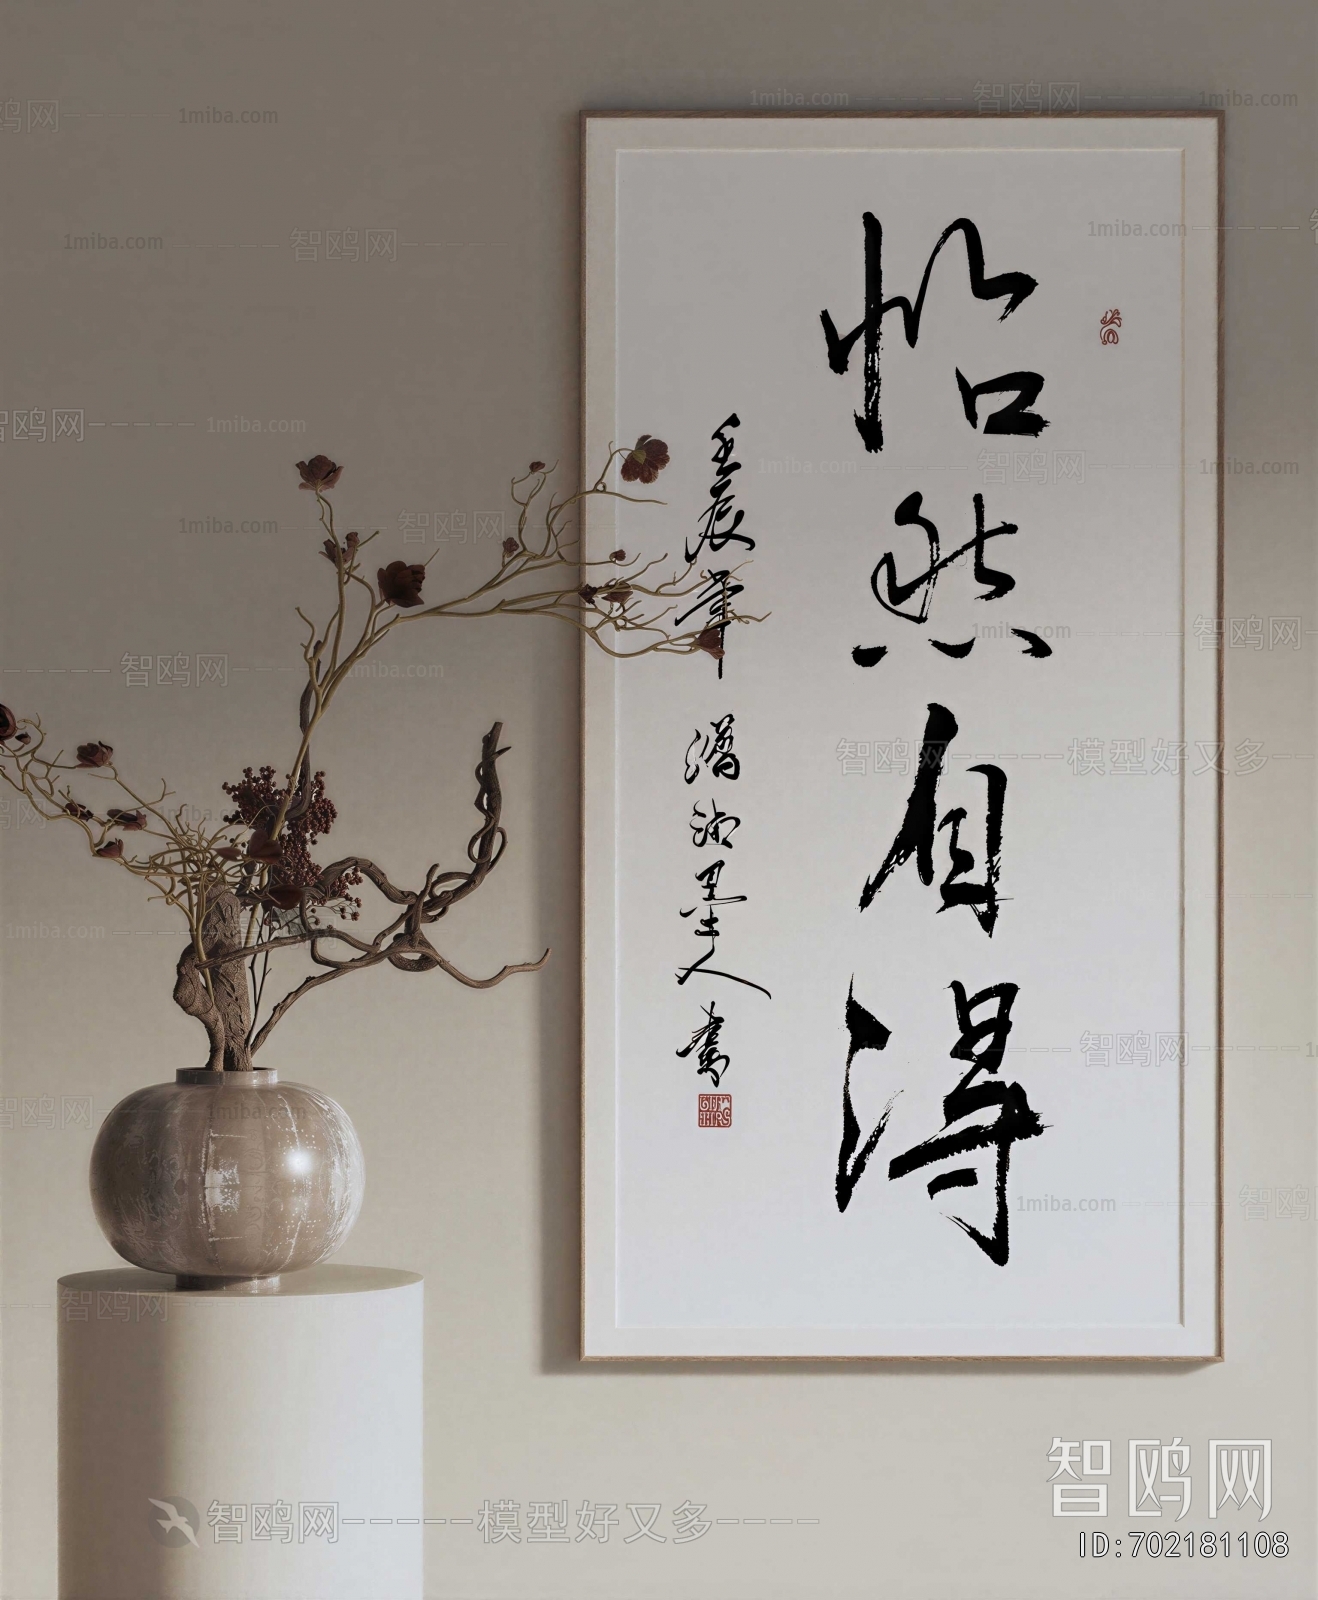 怡然自得
壬辰年 潘湖墨人书
智鸥网
ID:702181108
智鸥网-----模型好又多----
1miba.com